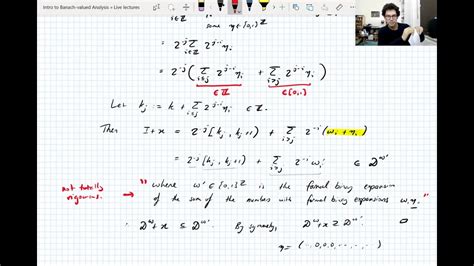 Intro to Banach-valued Analysis » Live lectures
i∈ℤ some η ∈ {0,1}^ℤ
= 2^{-j} Σ_{i∈ℤ} 2^{j-i} η_i
= 2^{-j} ( Σ_{i≤j} 2^{j-i} η_i + Σ_{i>j} 2^{j-i} η_i )
∈ ℤ ∈ [0,1)
Let k_j = k + Σ_{i≤j} 2^{j-i} η_i ∈ ℤ.
Then I + x = 2^{-j} [k_j, k_j+1) + Σ_{i>j} 2^{-i} (ω_i + η_i)
= 2^{-j} [k_j, k_j+1) + Σ_{i>j} 2^{-i} ω'_i ∈ 𝒟^{ω'}
not totally rigorous. → " where ω' ∈ {0,1}^ℤ is the formal binary expansion
of the sum of the numbers with formal binary expansions ω, η. "
∴ 𝒟^ω + x ⊆ 𝒟^{ω'}. By symmetry, 𝒟^ω + x ⊇ 𝒟^{ω'}. □